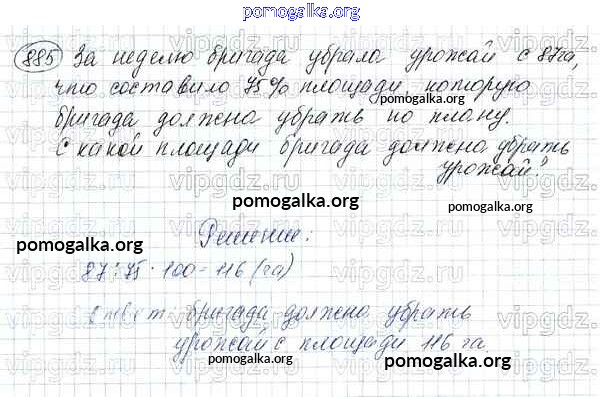 pomogalka.org
885 За неделю бригада убрала урожай с 87га,
что составило 75% площади которую
pomogalka.org
бригада должна убрать по плану.
С какой площади бригада должна убрать
урожай?
vipgdz.ru
pomogalka.org
pomogalka.org
pomogalka.org
Решение:
87:75·100=116 (га)
Ответ: бригада должна убрать
урожай с площади 116 га.
pomogalka.org
pomogalka.org